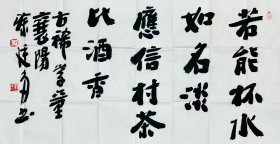 若能杯水
如名淡
應信村茶
比酒香
古稀学童
襄陽